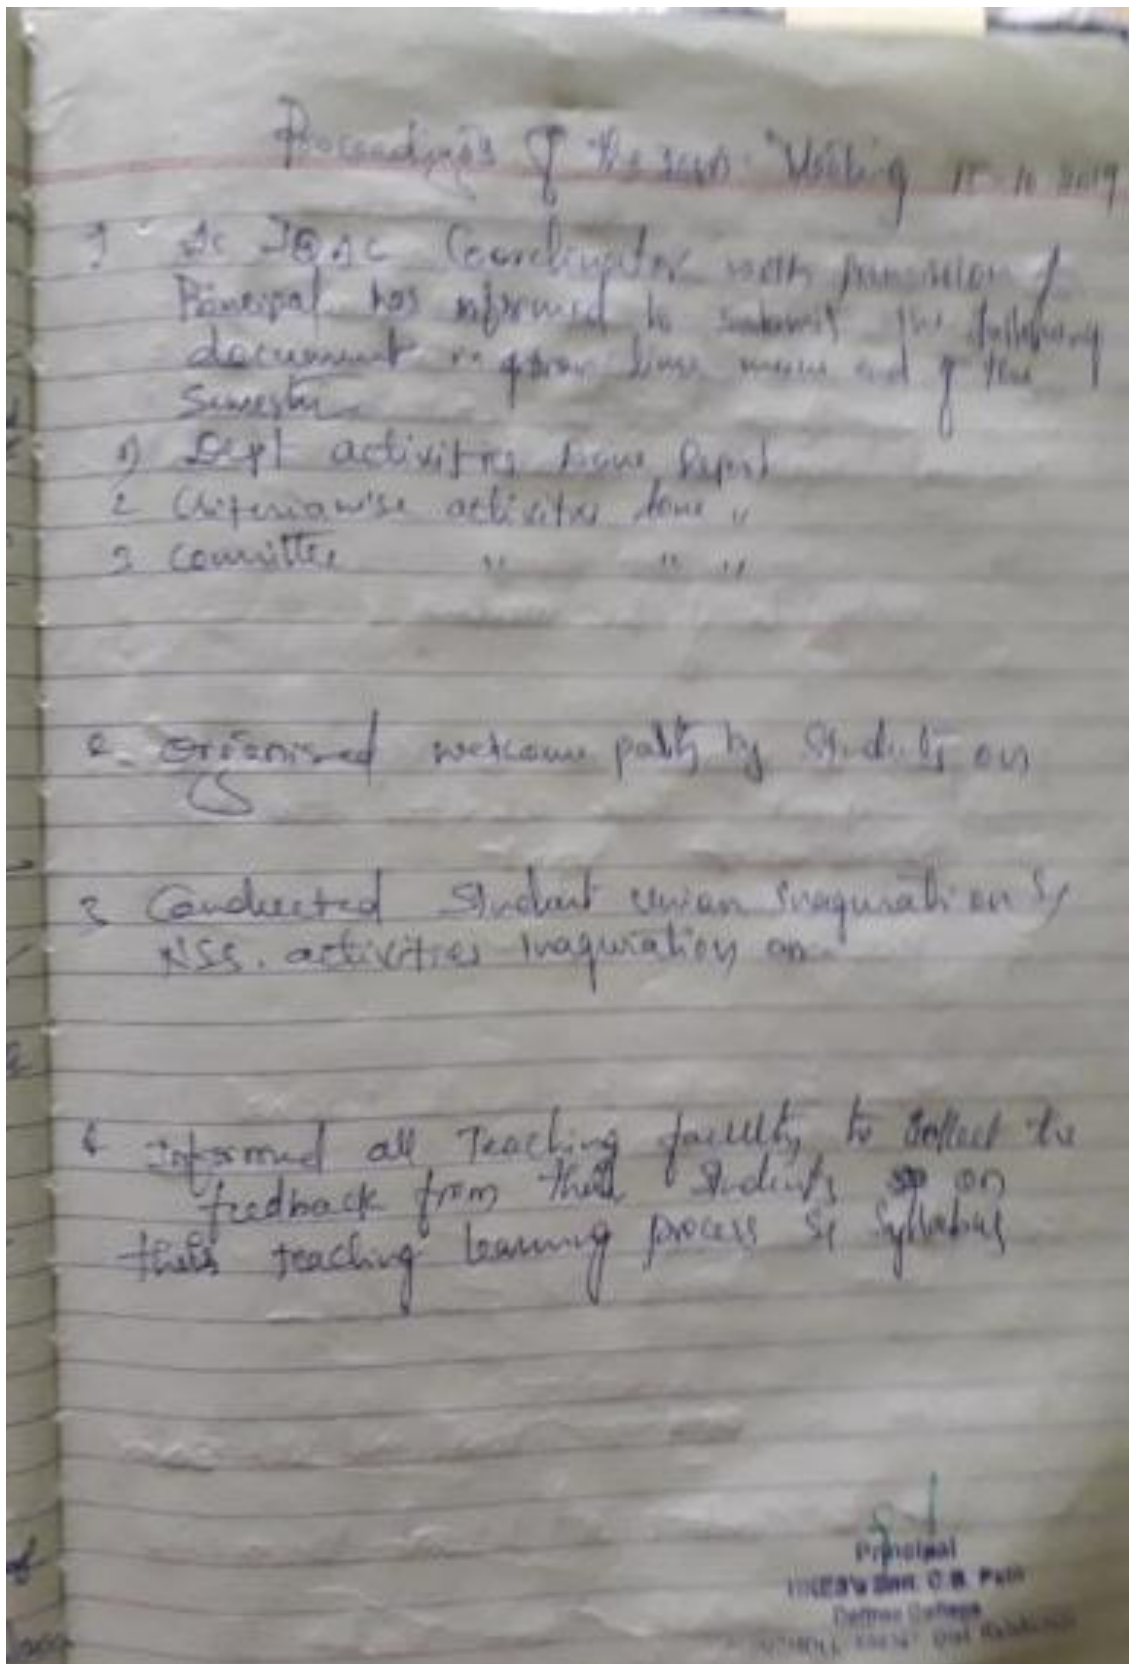 Proceedings of the Meeting 15-10-2019
1 As IQAC Coordinator with permission of
Principal has informed to submit the following
document in given time means end of the
Semester
1) Dept activities done Report
2 Criteriawise activities done "
3 Committee " " "
2. Organised welcome party by Students on
3 Conducted Student union Inaguration &
NSS. activities Inaguration on
4 Informed all Teaching faculty to collect the
feedback from their Students on
their teaching learning process & Syllabus
Principal
Smt. C.B.
Degree College